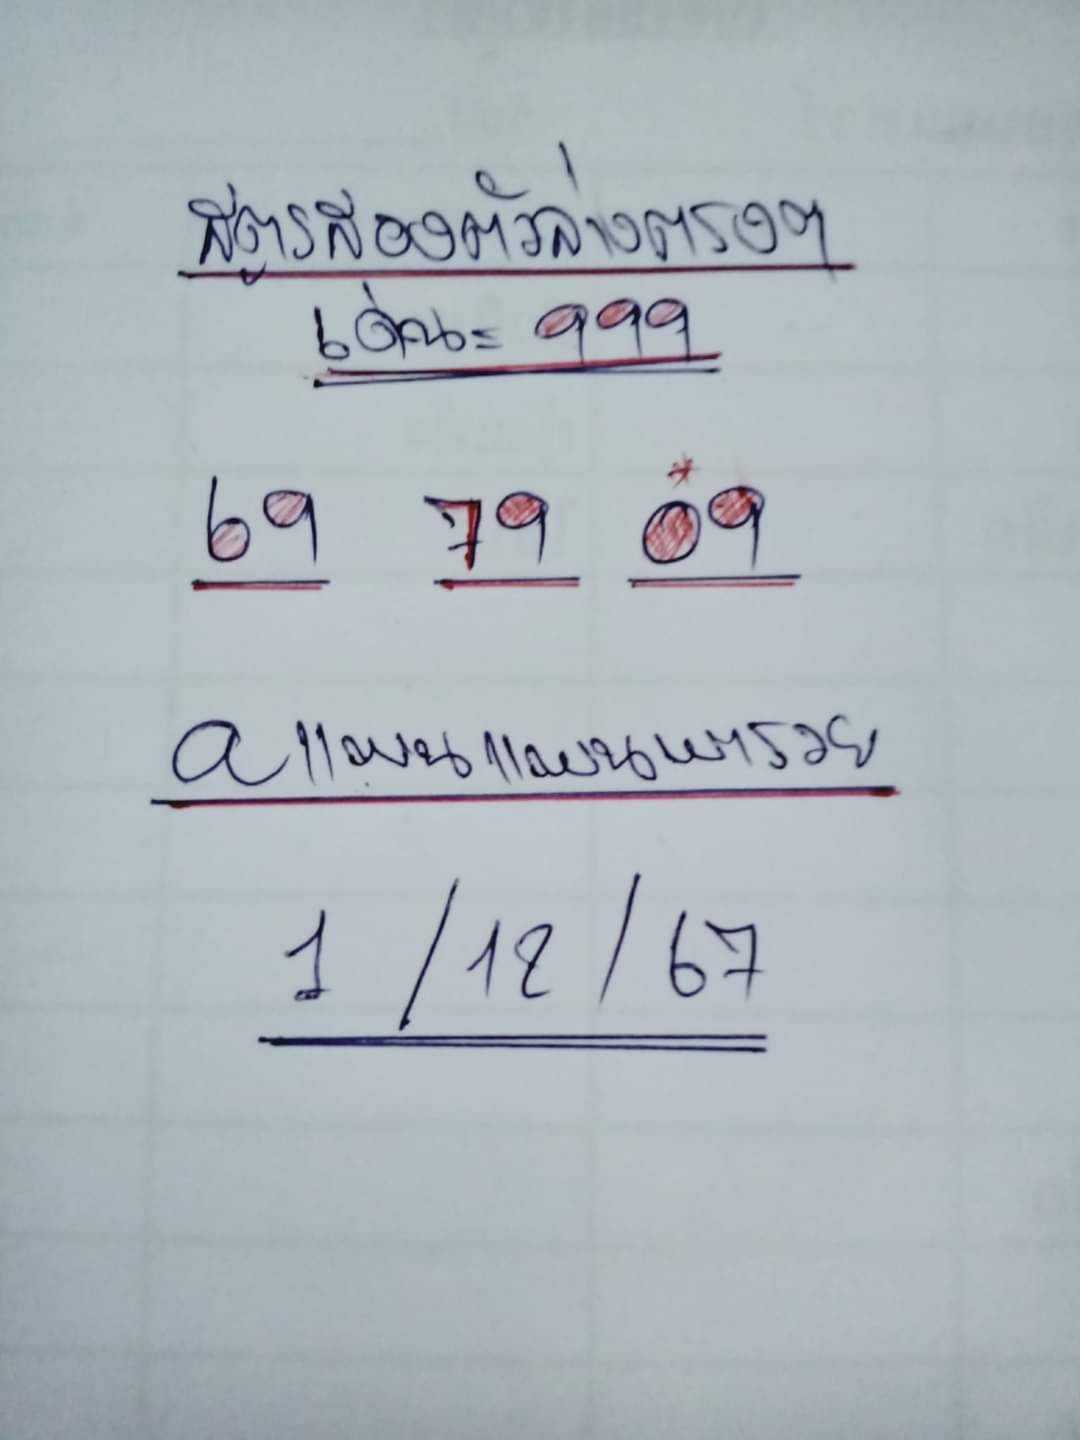 สูตรสองตัวล่างตรงๆ
เด่น= 999
69 79 *09
a แมนแมนพารวย
1/12/67